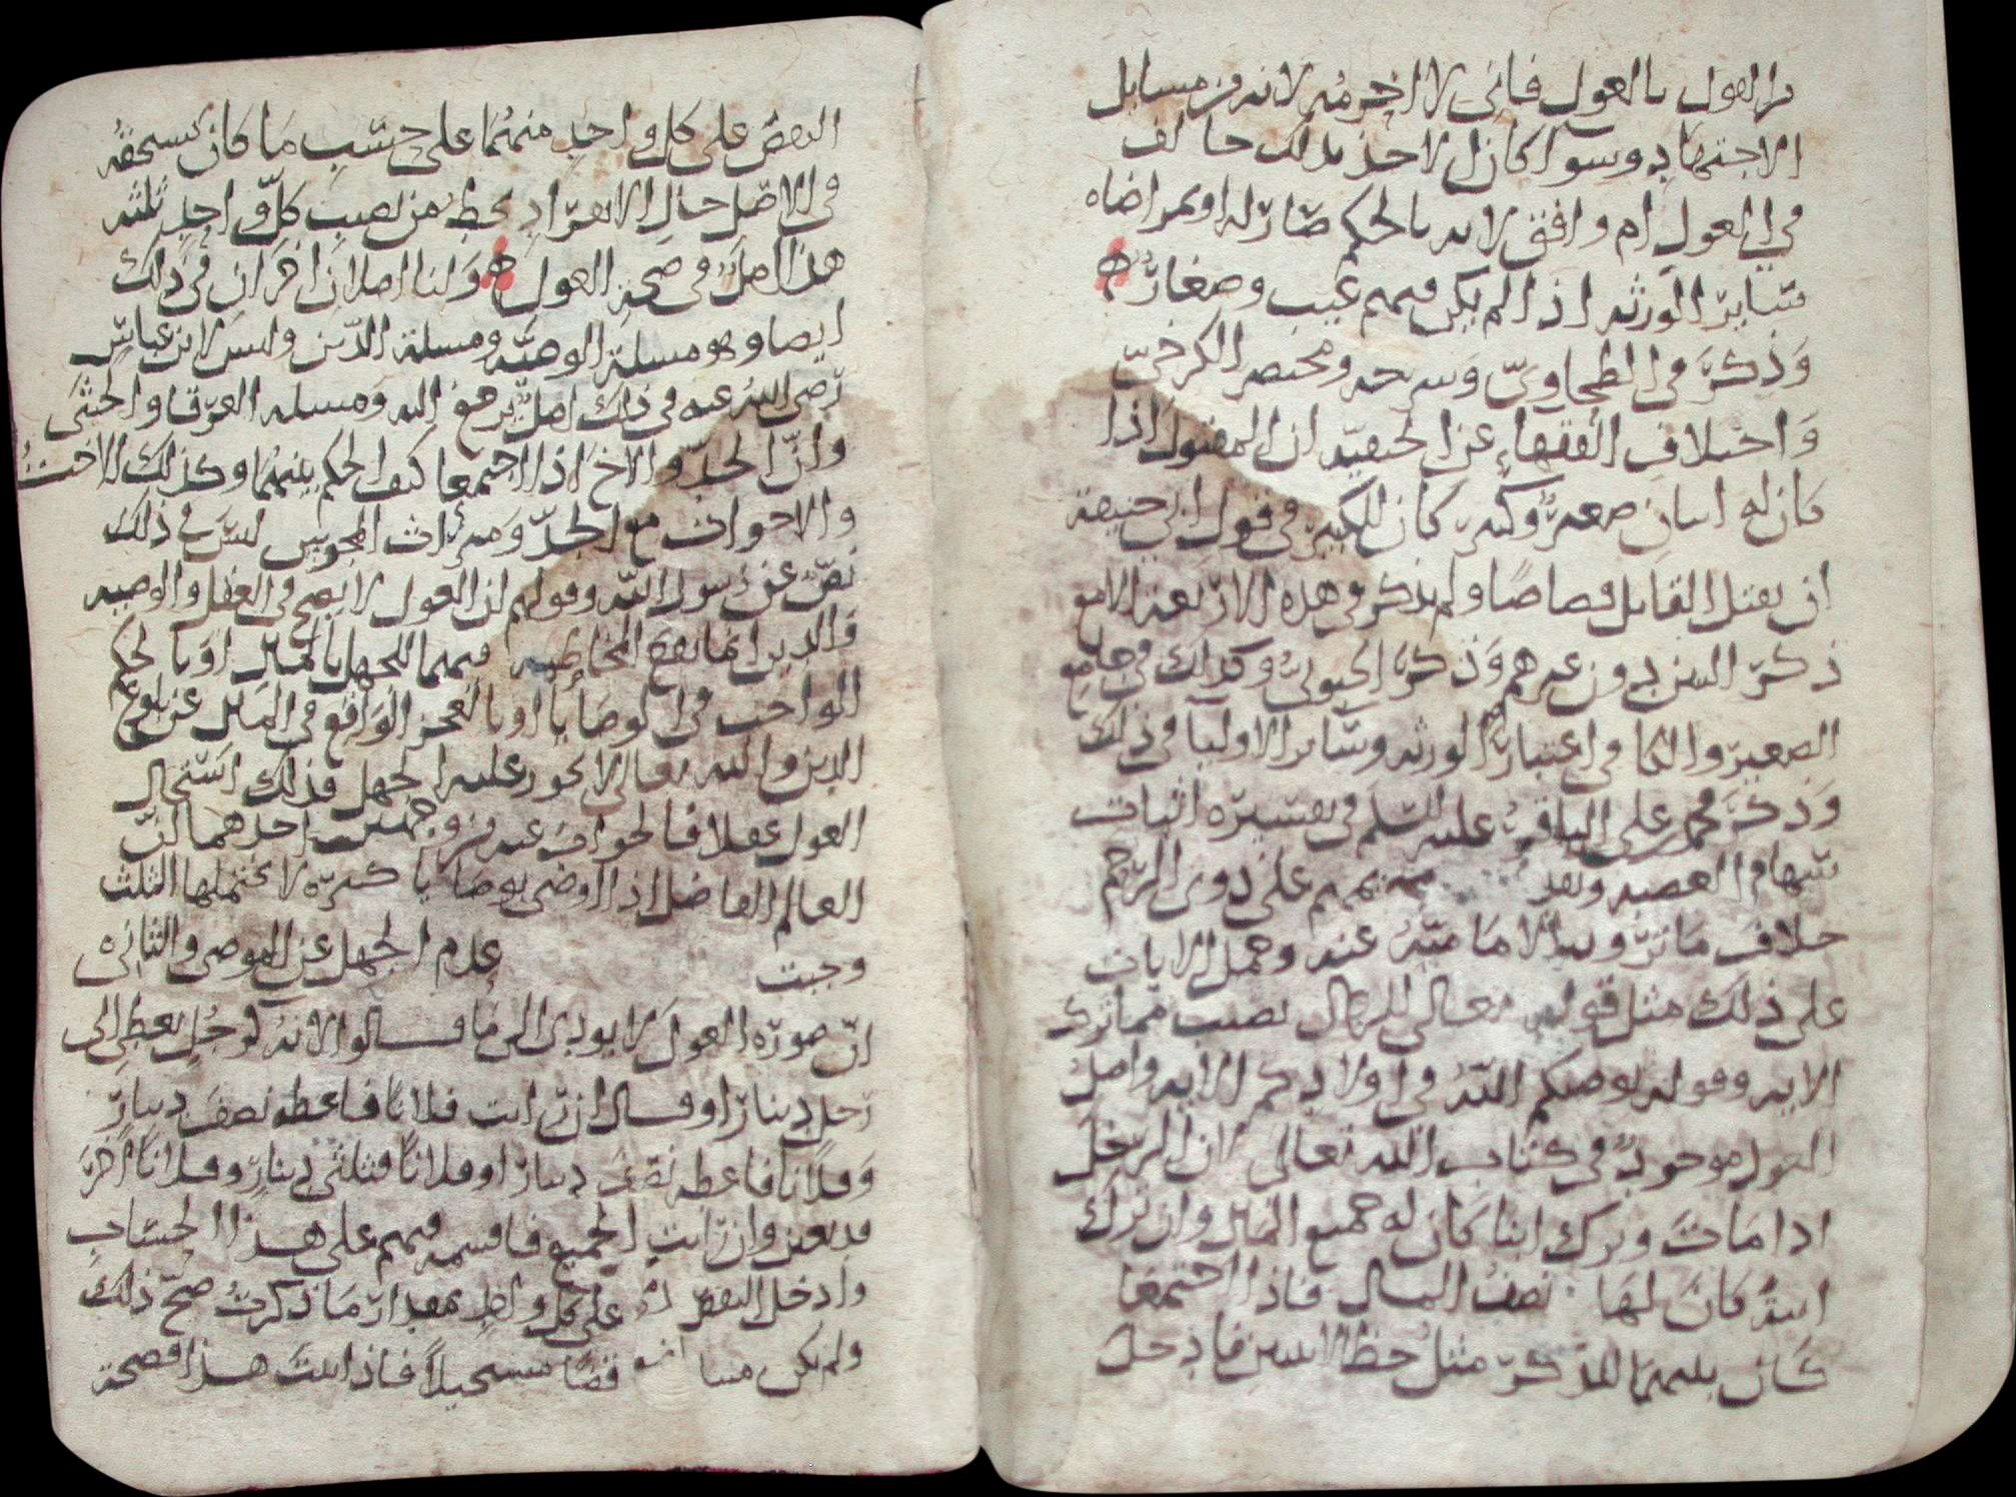 بالعول فاني لا اخرمه لانه من مسايل
الاجتهاد وسوآ كان الاخذ بذلك خالف
في العول ام وافق لانه بالحكم صار له او بمراضاه
سَاير الورثه اذا لم يكن فيهم غيب وصغار ه
وَذكرَ في الطحاويّ وشرحه ومختصر الكرخيّ
وَاختلاف الفقهاء عن الحنفيّه ان المقتول اذا
كان له ابنان صغير وكبير كان للكبير في قول ابي حنيفة
ان يقتل القاتل قصاصًا ولم يذكر في هذه الاربعة
ذكر الابن دون غيرهم وَذكرَ وكذلك في جامع
الصغير وانما في اعتبار الورثه وسَاير الاوليا في ذلك
وَذكرَ محمد بن علي الباقر عليه السلم في تفسيره اثبات
سهام العصبه على ذوى الرحم
خلاف مَا عنه وحمل الايات
على ذلك مثل قوله تعالى للرجال نصيب مما ترك
الايه وقوله يوصيكم اللّه في اولادكم الايه واصل
العول موجودٌ في كتاب الله تعالى لان الرجل
اذا مَاتَ وترك ابنا كَان له جميع المَال وان ترك
ابنةً كَانَ لهَا نصف المال فاذا اجتمعَا
كَان بينهمَا للذكر مثل حظ الانثيين فادخل
النقص على كل واحدٍ منهُمَا على حسَبِ مَا كان يستحقه
في الاصل حال الانفرادِ يحط من نصيب كلّ واحدٍ ثلثه
هذا اصلٌ في صحة العول ه وَلنا اصلان اخرَان في ذلك
ايضا وهو مسلة الوصيّه ومسلة الدّين وليس لابن عباس
رَضي الله عنه في ذلك اصلٌ يرجع اليه وَمسله الغرقا والخنثى
وانّ الجدّ والاخ اذا اجتمعا كيف الحكم بينهُمَا وكذلك الاختُ
والاخوات مع الجدّ وَميرَاث المجوس ليسَ في ذلك
نصّ عن رَسول الله وقولهم ان العول لا يصح في العقل والوصيه
وَالدين انما يقع فيهما للجهل بالمَال اوْ بالحكم
الواجب في الوصَايا او بالعجز الوَاقع في المَال عن بلوغ
الدين والله تعالى لا يجوز عليه الجهل فذلك استحال
العول عقلا فالجوابُ عنه من وجهين احدهما انّ
العالم الفاضل اذا اوصى بوصَايا كثيرَه لا تحتملها الثلث
وجبت عدم الجهل عن الموصى والثاني
انّ صورَه العول لا يودى الى مَا قالوا لانه كرجُلٍ يعطي الى
رَجل دينارًا وقال ان رَايت فلانًا فاعطه نصفَ دينارٍ
وَفلانًا فاعطه نصفَ دينارًا وفلانًا فثلثي دينارٍ وفلانًا اخرَ
وان رَايت الجميع فاقسمه فيهم على هذا الحسَاب
وادخل النقص على كل واحدٍ بمقدار مَا ذكرتُ صحّ ذلك
ولم يكن مستحيلاً فاذا ثبتَ هذا فصحة